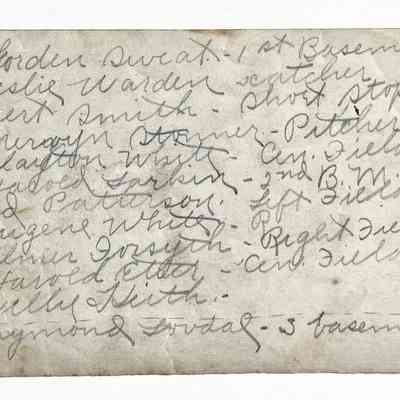 Gorden Sweat - 1st Basem
eslie Warden catcher
ert Smith - Short Stop
erwyn Stonner - Pitcher
layton White - Cen. Field
arold Larkin - 2nd B.M.
d Patterson. Left Field
ugene White - P
lmer Forsyth - Right Fie
Harold Etter - Cen. Field
elly Keith. -
aymond Lovdal - 3 basem